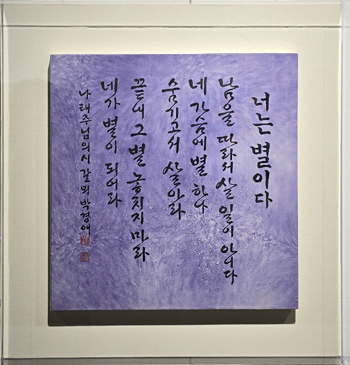 너는 별이다
남을 따라서 살 일이 아니다
네 가슴에 별 하나
숨기고서 살아라
끝내 그 별 놓치지 마라
네가 별이 되어라
나태주님의 시 갈뫼 박경애